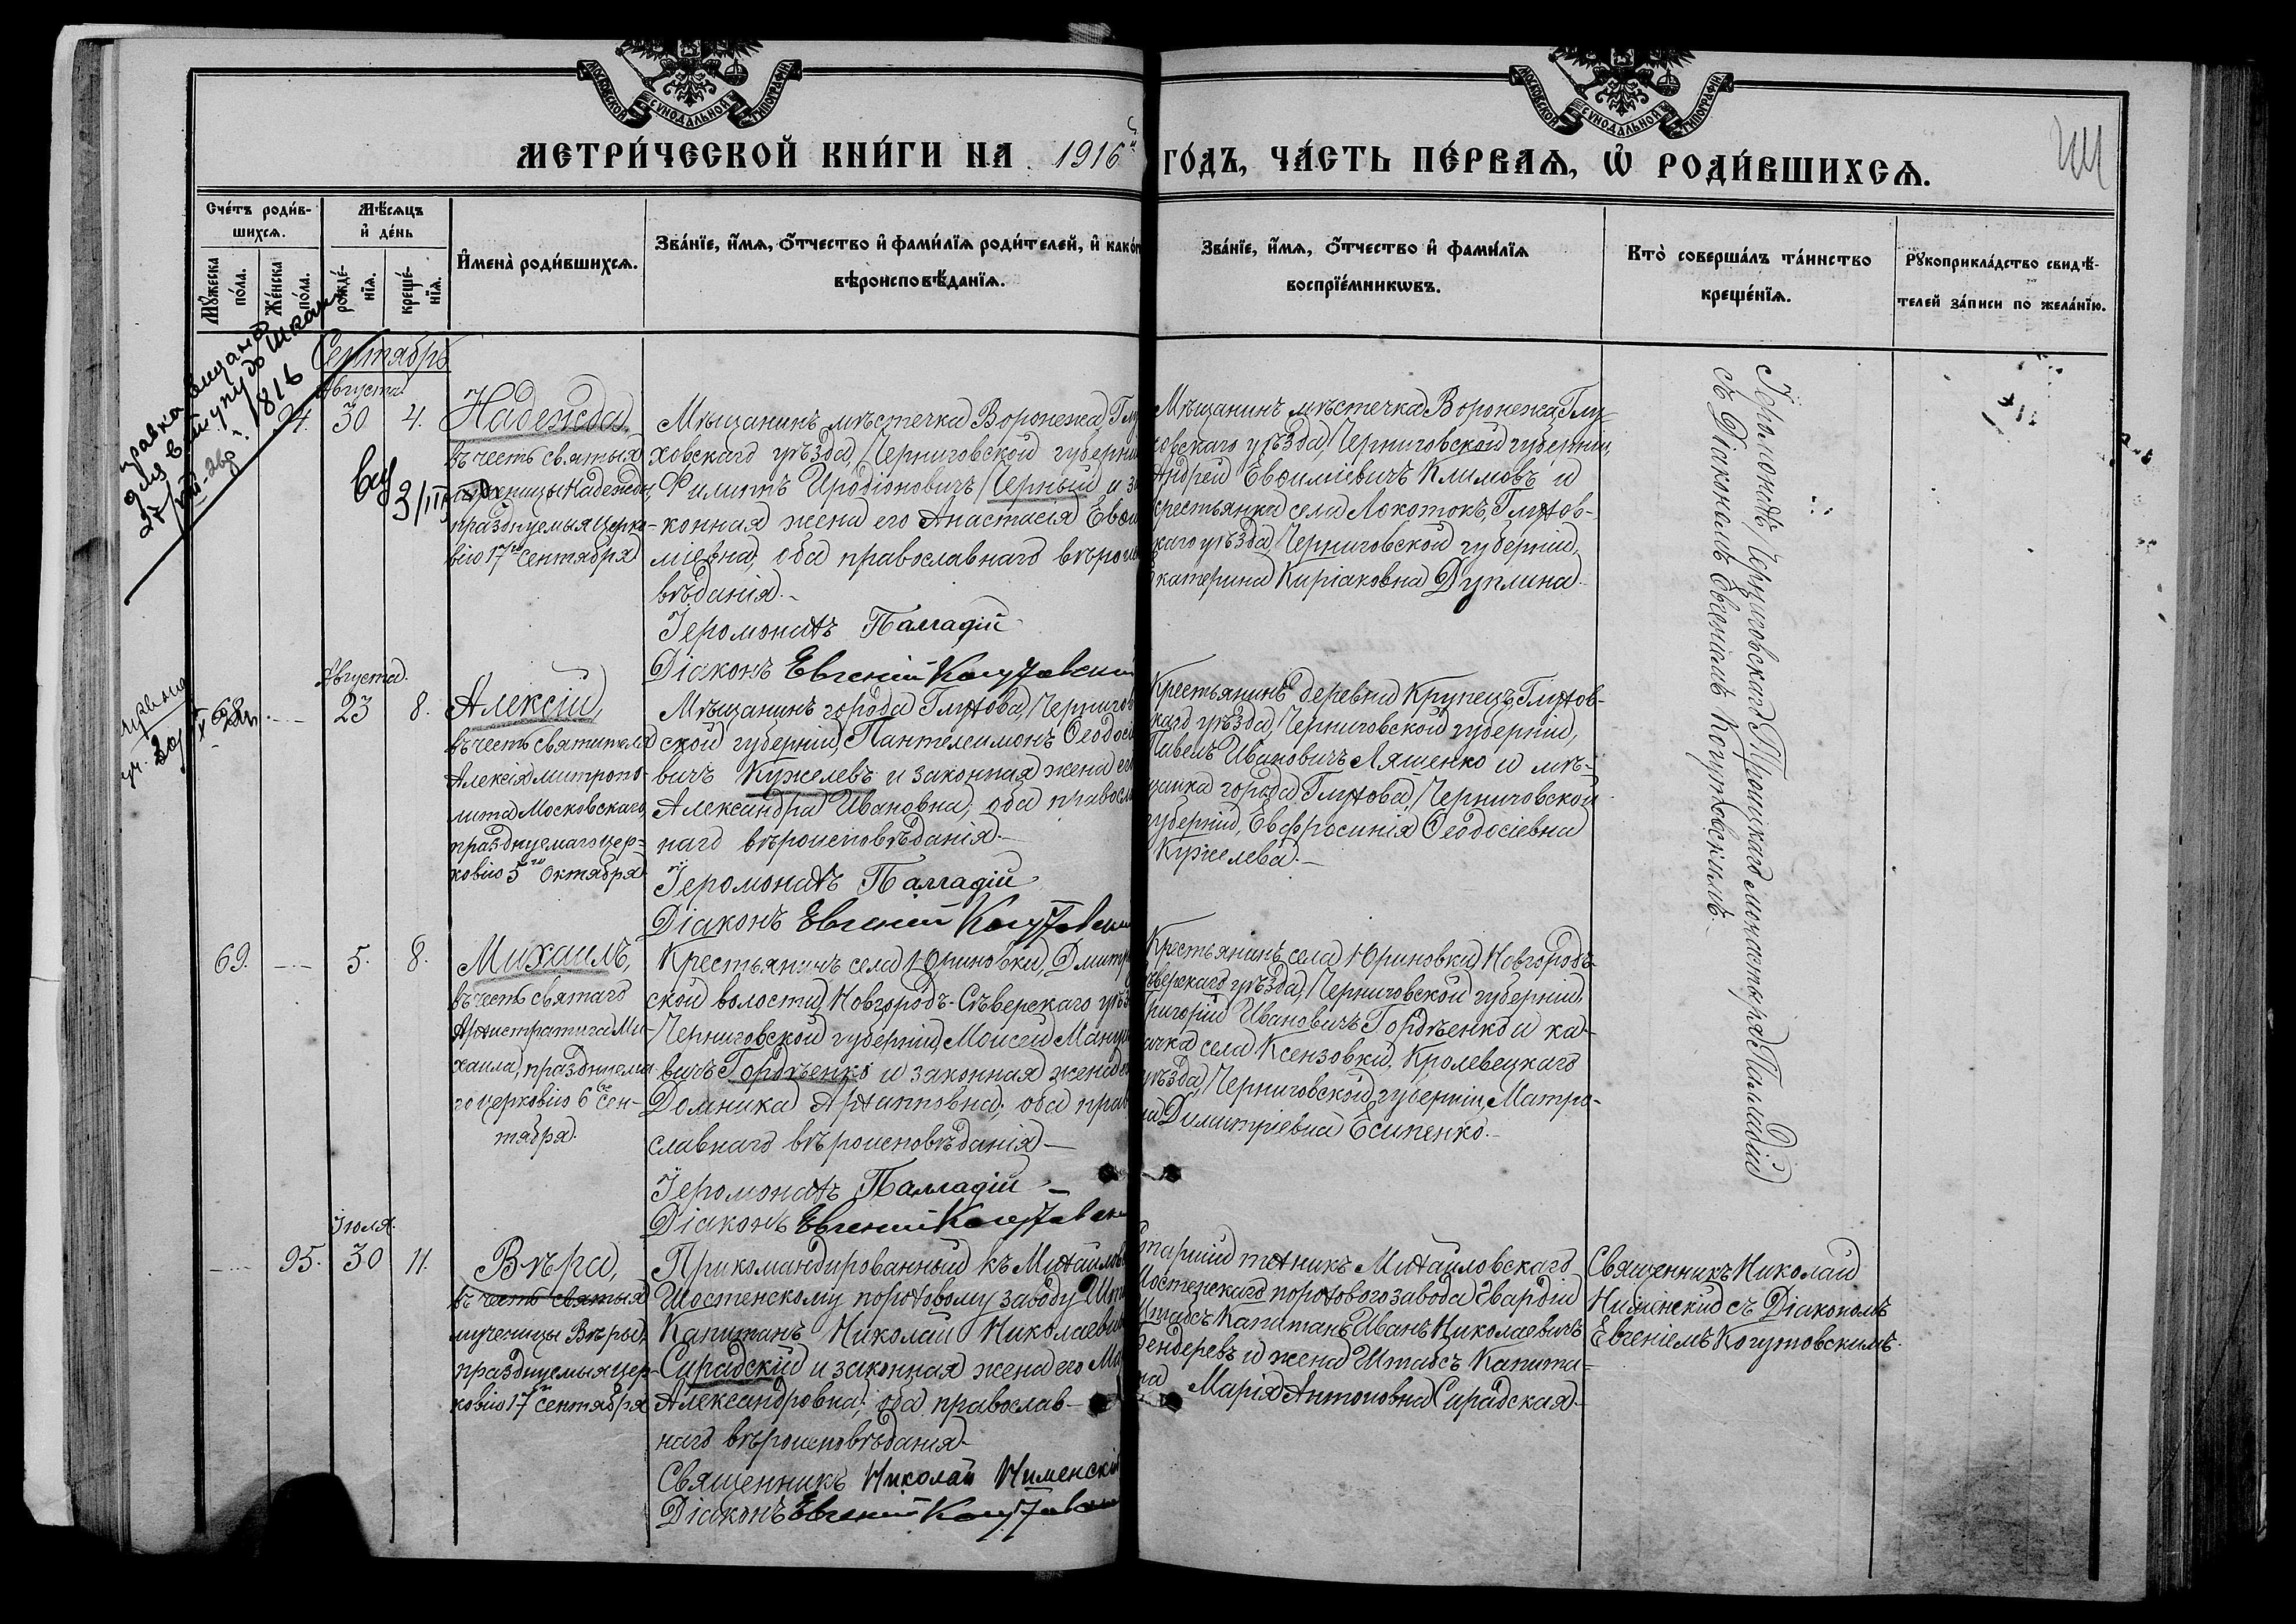 МОСКОВСКОЙ СѴНОДАЛЬНОЙ ТИПОГРАФІИ
МОСКОВСКОЙ СѴНОДАЛЬНОЙ ТИПОГРАФІИ
МЕТРИ́ЧЕСКОЙ КНИ́ГИ НА 1916й ГО́ДЪ, ЧА́СТЬ ПЕ́РВАѦ, Ѡ҆ РОДИ́ВШИХСѦ.
Сче́тъ роди́в-
шихсѧ.
Мꙋ́жеска по́ла.
Же́нска по́ла.
Мѣ́сѧцъ
и҆ де́нь
рожде́-
нїѧ.
креще́-
нїѧ.
И҆мена̀ роди́вшихсѧ.
Зва́нїе, и҆́мѧ, ѻ҆́тчество и҆ фами́лїѧ роди́телей, и҆ како́г
вѣроисповѣ́данїѧ.
Зва́нїе, и҆́мѧ, ѻ҆́тчество и҆ фами́лїѧ
воспрїе́мникѡвъ.
Кто̀ соверша́лъ та́инство
креще́нїѧ.
Рꙋкоприкла́дство свидѣ́-
телей за́писи по жела́нїю.
Сентябрь
Августа
94. 30 4. Надежда,
въ честь святыя
мученицы Надежды,
празднуемыя церко-
вію 17го Сентября
Мѣщанинъ мѣстечка Воронежа, Глу
ховскаго уѣзда, Черниговской губерніи
Филиппъ Иродіоновичъ Черный и за
конная жена его Анастасія Евѳи
міевна, оба православнаго вѣроиспо
вѣданія.
Іеромонахъ Палладій
Діаконъ Евгеній Когутовскій
Мѣщанинъ мѣстечка Воронежа, Глу-
ховскаго уѣзда, Черниговской губерніи,
Андрей Евѳиміевичъ Климовъ и
крестьянка села Локотокъ, Глухов-
скаго уѣзда, Черниговской губерніи,
Екатерина Киріаковна Дуплина.
Іеромонахъ Черниговскаго Троицкаго монастыря Палладій
съ Діакономъ Евгеніемъ Когутовскимъ.
Августа.
68. 23 8. Алексій,
въ честь святителя
Алексія митропо-
лита Московскаго,
празднуемаго цер-
ковію 5го Октября
Мѣщанинъ города Глухова, Чернигов
ской губерніи, Пантелеимонъ Ѳеодосіе
вичъ Кужелевъ и законная жена его
Александра Ивановна, оба правосла
наго вѣроисповѣданія.
Іеромонахъ Палладій
Діаконъ Евгеній Когутовскій
Крестьянинъ деревни Крупецъ, Глухов-
скаго уѣзда, Черниговской губерніи,
Павелъ Ивановичъ Ляшенко и мѣ-
щанка города Глухова, Черниговской
губерніи, Евфросинія Ѳеодосіевна
Кужелева.
69. 5. 8. Михаилъ,
въ честь святаго
Архистратига Ми-
хаила, празднуема-
го церковію 6го Сен-
тября.
Крестьянинъ села Юриновки, Дмитро
ской волости, Новгородъ-Сѣверскаго уѣз
Черниговской губерніи, Моисей Мануи
вичъ Гордѣенко и законная жена его
Домника Архиповна, оба прав
славнаго вѣроисповѣданія.
Іеромонахъ Палладій
Діаконъ Евгеній Когутовскій
Крестьянинъ села Юриновки, Новгородъ-
Сѣверскаго уѣзда, Черниговской губерніи,
Григорій Ивановичъ Гордѣенко и ка-
зачка села Ксензовки, Кролевецкаго
уѣзда, Черниговской губерніи, Матро-
на Димитріевна Есипенко.
Іюля.
95. 30 11. Вѣра,
въ честь святыя
мученицы Вѣры,
празднуемыя цер-
ковію 17го Сентября
Прикомандированный къ Михайлов
Шостенскому пороховому заводу Шта
Капитанъ Николай Николаевичъ
Сирадскій и законная жена его Ма
Александровна, оба православ-
наго вѣроисповѣданія.
Священникъ Николай Нименскій
Діаконъ Евгеній Когутовскій
Старшій техникъ Михайловскаго
Шостенскаго пороховаго завода Гвардіи
Штабсъ Капитанъ Иванъ Николаевичъ
и жена Штабсъ Капита-
на Марія Антоновна Сирадская.
Священникъ Николай
Нименскій съ Діакономъ
Евгеніемъ Когутовскимъ.